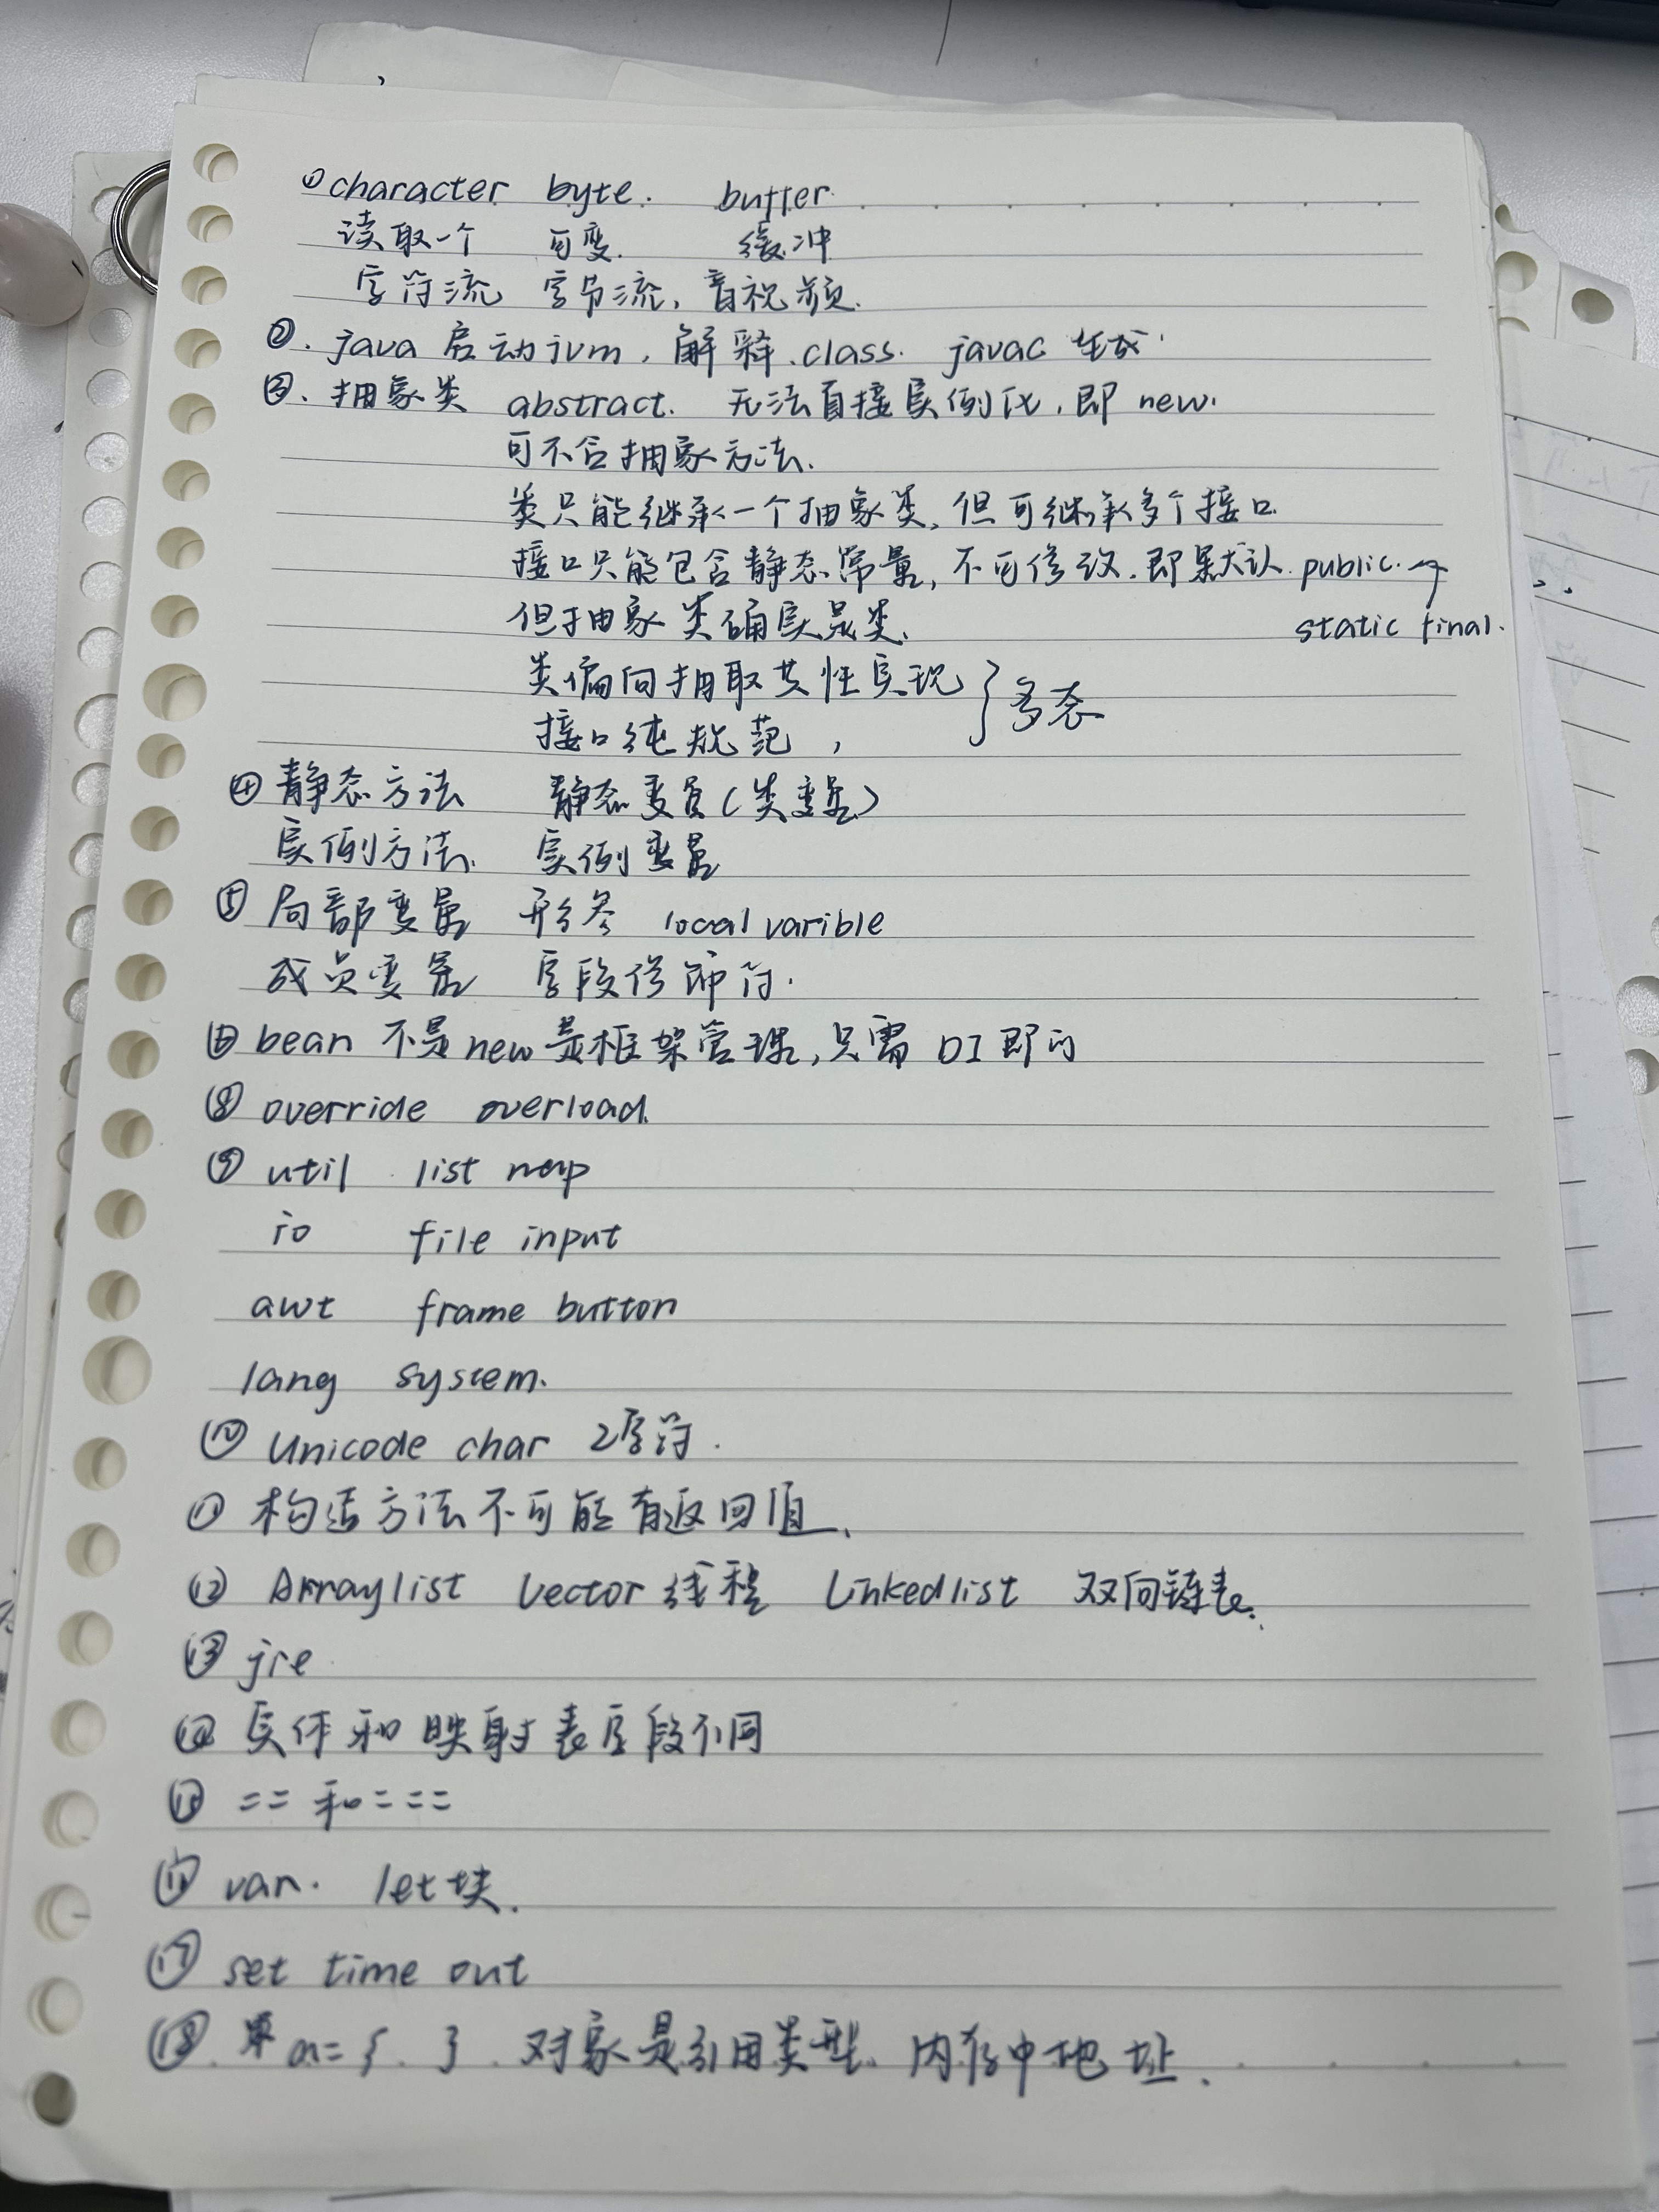 ① character byte. buffer.
读取一个 可变. 缓冲
字符流 字节流, 音视频.
②. java 启动jvm, 解释.class. javac 生成.
③. 抽象类 abstract. 无法直接实例化, 即 new.
可不含抽象方法.
类只能继承一个抽象类, 但可继承多个接口
接口只能包含静态常量, 不可修改. 即默认 public.
static final.
但抽象类确实是类.
类偏向抽取共性实现
接口纯规范,
} 多态
④ 静态方法 静态变量(类变量)
实例方法. 实例变量
⑤ 局部变量 形参 local varible
成员变量 字段修饰符.
bean 不是new是框架管理, 只需 DI 即可
⑧ override overload.
⑨ util list map
io file input
awt frame button
lang system.
⑩ Unicode char 2字符.
⑪ 构造方法不可能有返回值.
⑫ Arraylist Vector 线程 Linkedlist 双向链表.
⑬ jre
⑭ 实体和映射表字段不同
⑮ == 和 ===
⑯ var. let块.
⑰ set time out
⑱. a={ . } . 对象是引用类型. 内存中地址.